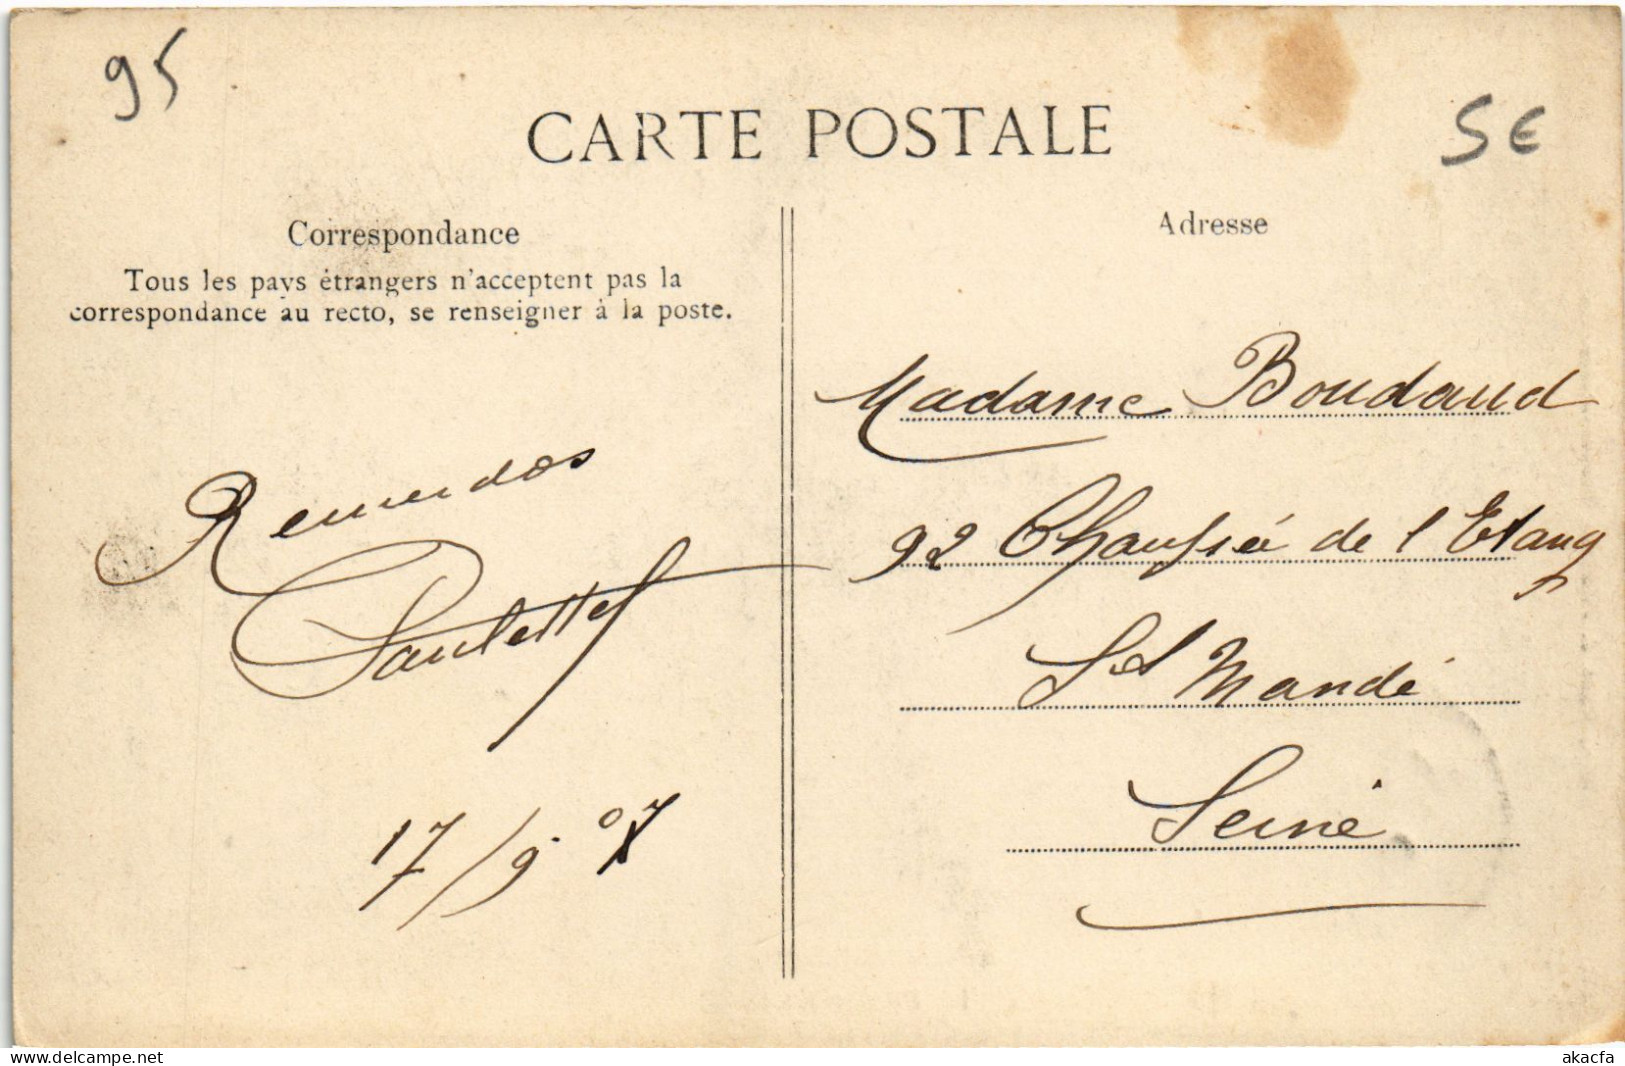 95
5€
CARTE POSTALE
Correspondance
Tous les pays étrangers n'acceptent pas la
correspondance au recto, se renseigner à la poste.
Recuerdos
Paulette
17/9.07
Adresse
Madame Boudaud
92 Chaussée de l'Etang
St Mandé
Seine
delcampe.net
akacfa